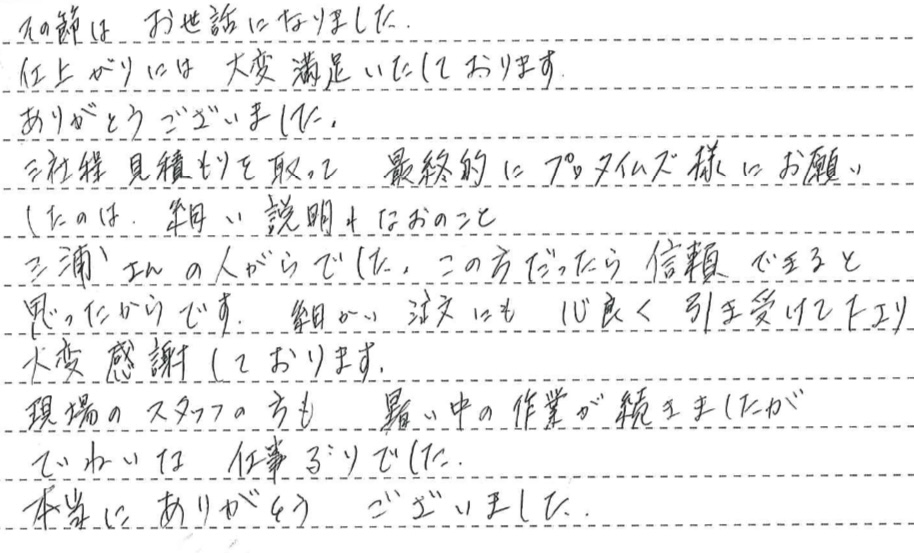 その節は お世話になりました.
仕上がりには 大変 満足いたしております.
ありがとうございました.
三社程 見積もりを取って 最終的に プロタイムズ 様に お願い
したのは. 細い 説明も なおのこと
三浦さんの人がらでした. この方だったら 信頼 できると
思ったからです. 細かい 注文にも 心良く 引き受けて下さり
大変 感謝しております.
現場の スタッフの方も 暑い中の 作業が 続きましたが
ていねいな 仕事ぶりでした.
本当に ありがとう ございました.